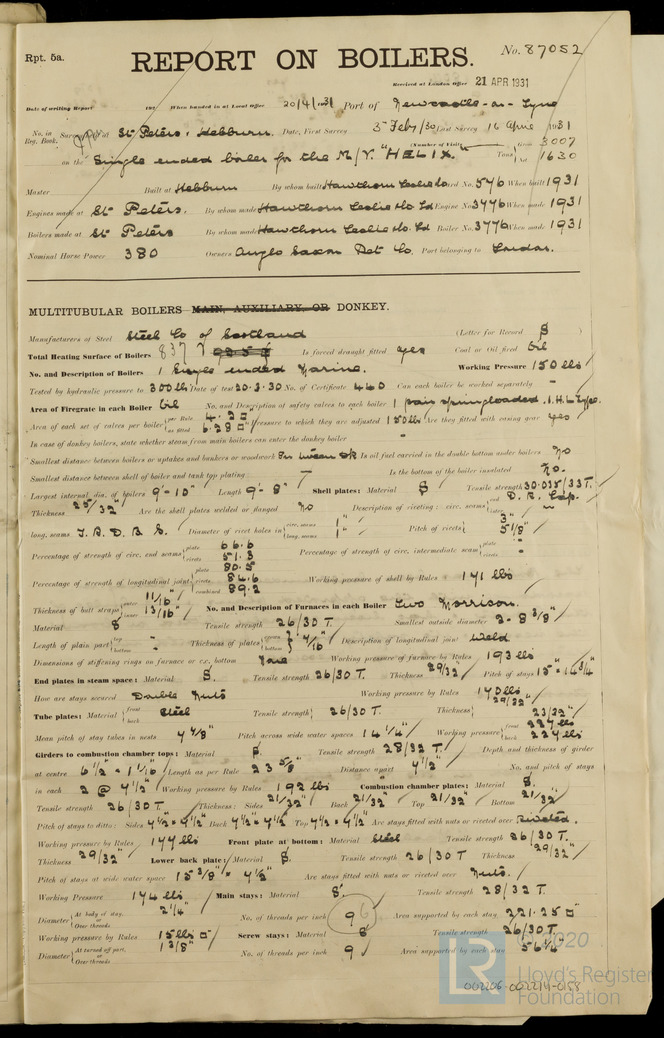 Rpt. 5a.
REPORT ON BOILERS.
No. 87052
Received at London Office 21 APR 1931
Date of writing Report 192 When handed in at Local Office 20/4/1931 Port of Newcastle-on-Tyne
No. in Reg. Book. Survey held at St Peters, Hebburn. Date, First Survey 5 Feby/30 Last Survey 16 April 1931
(Number of Visits
on the Single ended boiler for the M/V. "HELIX" Tons Gross 3007 Net 1630
Master Built at Hebburn By whom built Hawthorn Leslie & Co Yard No. 576 When built 1931
Engines made at St Peters. By whom made Hawthorn Leslie & Co. Ld Engine No. 3776 When made 1931
Boilers made at St Peters By whom made Hawthorn Leslie & Co. Ld Boiler No. 3776 When made 1931
Nominal Horse Power 380 Owners Anglo Saxon Pet Co. Port belonging to London.
MULTITUBULAR BOILERS MAIN, AUXILIARY, OR DONKEY.
Manufacturers of Steel Steel Co of Scotland (Letter for Record S )
Total Heating Surface of Boilers 837 Is forced draught fitted yes Coal or Oil fired Oil
No. and Description of Boilers 1 Single ended Marine. Working Pressure 150 lbs
Tested by hydraulic pressure to 300 lbs Date of test 20.3.30 No. of Certificate 460 Can each boiler be worked separately -
Area of Firegrate in each Boiler Oil No. and Description of safety valves to each boiler 1 pair spring loaded. I.H.L Type.
Area of each set of valves per boiler per Rule as fitted 6.28 Pressure to which they are adjusted 150 lbs Are they fitted with easing gear yes
In case of donkey boilers, state whether steam from main boilers can enter the donkey boiler -
Smallest distance between boilers or uptakes and bunkers or woodwork On tween dk Is oil fuel carried in the double bottom under boilers No
Smallest distance between shell of boiler and tank top plating - Is the bottom of the boiler insulated No.
Largest internal dia. of boilers 9'-10" Length 9'-8" Shell plates: Material S Tensile strength 30.035/33 T.
Thickness 25/32" Are the shell plates welded or flanged No Description of riveting: circ. seams end D. R. Lap. inter -
long. seams T.R.D.B.S. Diameter of rivet holes in circ. seams 1" long. seams 1" Pitch of rivets 3" 5 1/8"
Percentage of strength of circ. end seams plate 66.6 rivets 51.3 Percentage of strength of circ. intermediate seam plate - rivets -
Percentage of strength of longitudinal joint plate 80.5 rivets 84.6 combined 89.2 Working pressure of shell by Rules 171 lbs
Thickness of butt straps outer 11/16" inner 13/16" No. and Description of Furnaces in each Boiler Two Morrison.
Material S Tensile strength 26/30 T Smallest outside diameter 2-8 3/8"
Length of plain part top bottom - Thickness of plates crown bottom 7/16" Description of longitudinal joint Weld
Dimensions of stiffening rings on furnace or c.c. bottom None Working pressure of furnace by Rules 193 lbs
End plates in steam space: Material S. Tensile strength 26/30 T. Thickness 29/32" Pitch of stays 15" x 14 3/4"
How are stays secured Double Nuts Working pressure by Rules 170 lbs
Tube plates: Material front back Steel Tensile strength 26/30 T. Thickness 29/32" 23/32"
Mean pitch of stay tubes in nests 9 4/8" Pitch across wide water spaces 14 1/4" Working pressure front 227 lbs back 227 lbs
Girders to combustion chamber tops: Material S. Tensile strength 28/32 T. Depth and thickness of girder
at centre 6 1/2" x 1 1/16" Length as per Rule 23 5/8" Distance apart 7 1/2" No. and pitch of stays
in each 2 @ 7 1/2" Working pressure by Rules 192 lbs Combustion chamber plates: Material S.
Tensile strength 26/30 T. Thickness: Sides 21/32" Back 21/32" Top 21/32" Bottom 21/32"
Pitch of stays to ditto: Sides 7 1/2" x 7 1/2" Back 7 1/2" x 7 1/2" Top 7 1/2" x 7 1/2" Are stays fitted with nuts or riveted over Riveted.
Working pressure by Rules 177 lbs Front plate at bottom: Material Steel Tensile strength 26/30 T.
Thickness 29/32" Lower back plate: Material S. Tensile strength 26/30 T Thickness 29/32"
Pitch of stays at wide water space 15 3/8" x 7 1/2" Are stays fitted with nuts or riveted over Nuts.
Working Pressure 174 lbs Main stays: Material S. Tensile strength 28/32 T.
Diameter At body of stay, or Over threads 2 1/4" No. of threads per inch 9 6 Area supported by each stay 221.25
Working pressure by Rules Screw stays: Material S Tensile strength 26/30 T.
Diameter At turned off part, or Over threads 1 3/8" No. of threads per inch 9 Area supported by each stay 56 1/4"
© 2020
LR Lloyd's Register Foundation
002206-002214-0158